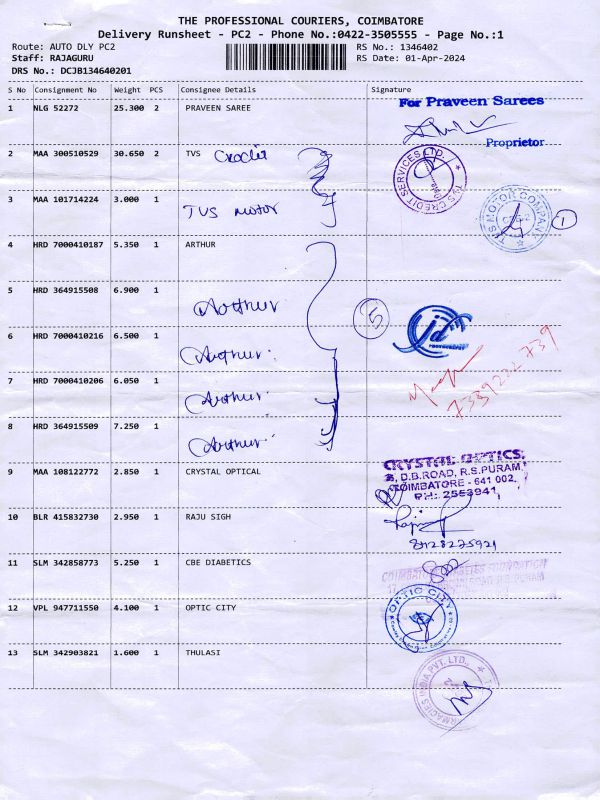 THE PROFESSIONAL COURIERS, COIMBATORE
Delivery Runsheet - PC2 - Phone No.:0422-3505555 - Page No.:1
Route: AUTO DLY PC2 RS No.: 1346402
Staff: RAJAGURU RS Date: 01-Apr-2024
DRS No.: DCJB134640201
S No Consignment No Weight PCS Consignee Details Signature
1 NLG 52272 25.300 2 PRAVEEN SAREE
For Praveen Sarees
Proprietor
2 MAA 300510529 30.650 2 TVS Credit
T&S CREDIT SERVICES LTD.
3 MAA 101714224 3.000 1 TVS motor
T.S MOTOR COMPANY
1
4 HRD 7000410187 5.350 1 ARTHUR
5 HRD 364915508 6.900 1 Arthur
5
jd
PHOTOGRAPHY
6 HRD 7000410216 6.500 1 Arthur
7 HRD 7000410206 6.050 1 Arthur
8 HRD 364915509 7.250 1 Arthur
9 MAA 108122772 2.850 1 CRYSTAL OPTICAL
CRYSTAL OPTICS,
D.B.ROAD, R.S.PURAM,
COIMBATORE - 641 002.
PH: 2553941
10 BLR 415832730 2.950 1 RAJU SIGH
11 SLM 342858773 5.250 1 CBE DIABETICS
COIMBATORE DIABETES FOUNDATION
12 VPL 947711550 4.100 1 OPTIC CITY
OPTIC CITY
13 SLM 342903821 1.600 1 THULASI
PHARMACIES INDIA PVT. LTD.,